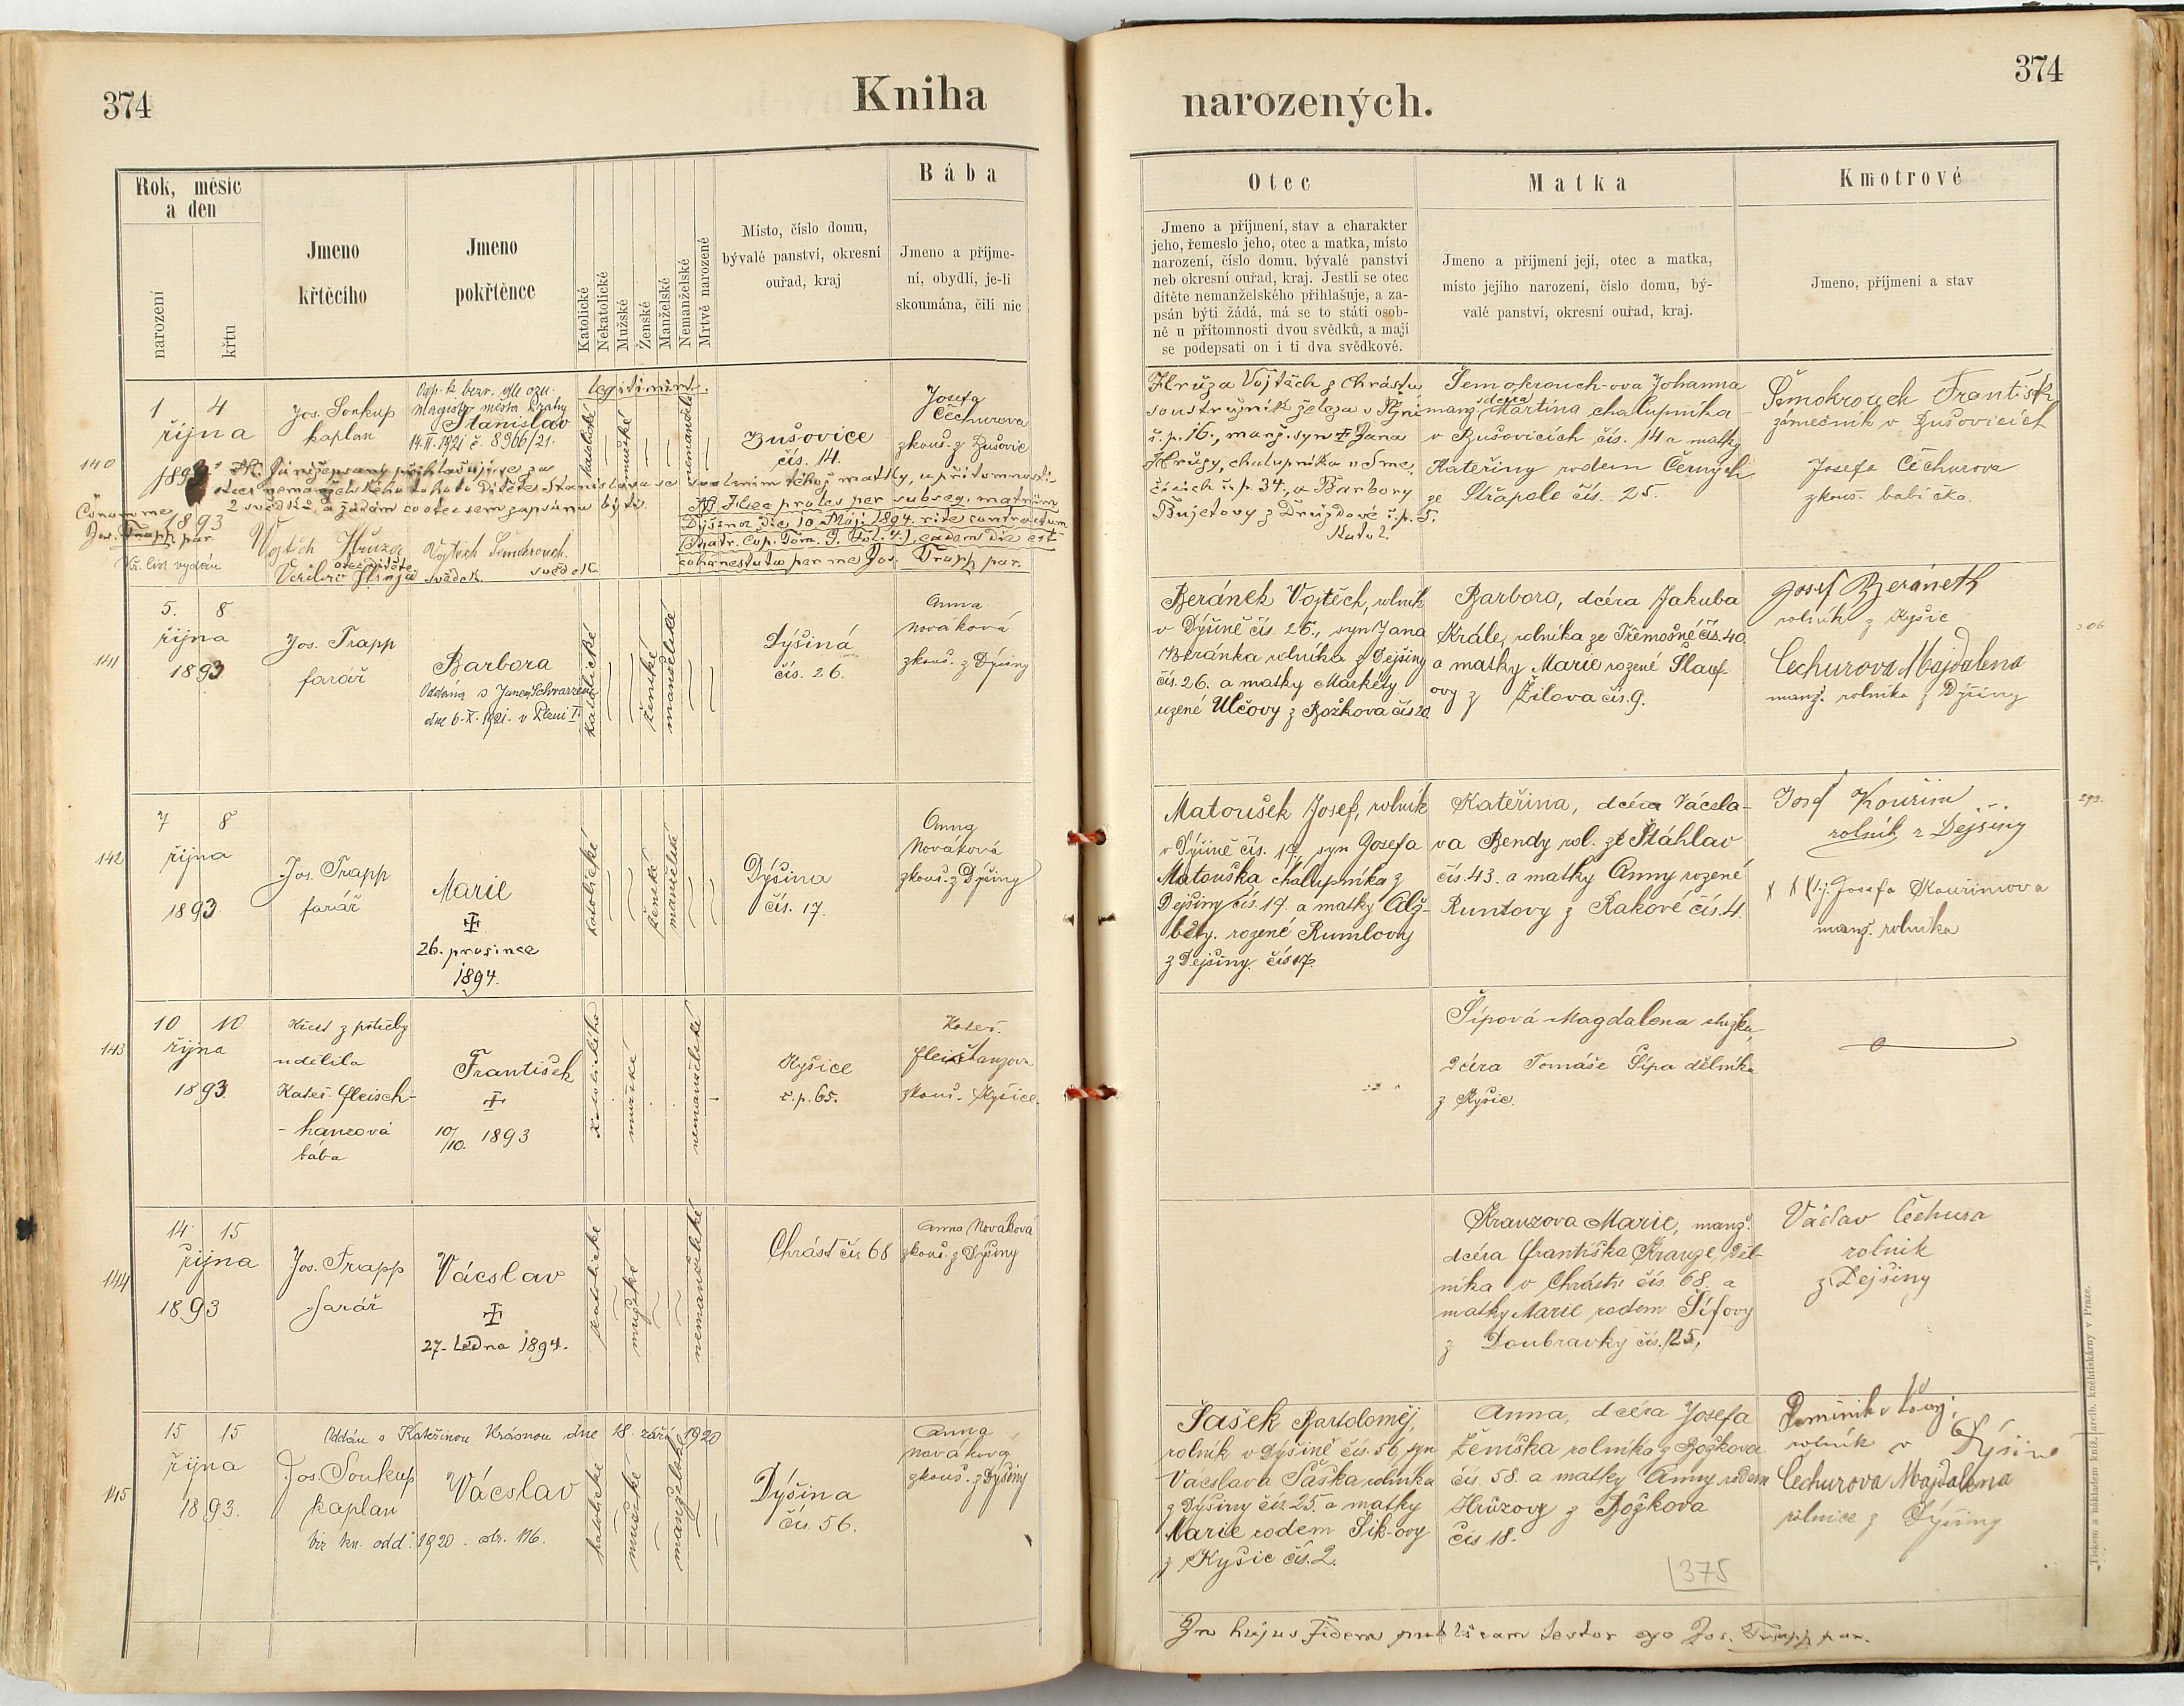 374
Kniha
narozených.
374
Rok, měsíc
a den
narození
křtu
Jmeno
křtěcího
Jmeno
pokřtěnce
Katolické
Nekatolické
Mužské
Ženské
Manželské
Nemanželské
Mrtvě narozené
Místo, číslo domu,
bývalé panství, okresní
ouřad, kraj
Bába
Jmeno a příjme-
ní, obydlí, je-li
skoumána, čili nic
Otec
Jmeno a příjmení, stav a charakter
jeho, řemeslo jeho, otec a matka, místo
narození, číslo domu, bývalé panství
neb okresní ouřad, kraj. Jestli se otec
dítěte nemanželského přihlašuje, a za-
psán býti žádá, má se to státi osob-
ně u přítomnosti dvou svědků, a mají
se podepsati on i ti dva svědkové.
Matka
Jmeno a příjmení její, otec a matka,
místo jejího narození, číslo domu, bý-
valé panství, okresní ouřad, kraj.
Kmotrové
Jmeno, příjmení a stav
140
1 4
října
1893
Jos. Soukup
kaplan
magistr. města Prahy
Stanislav
14.II.1921 č. 8966/21.
legitimint.
katolické
mužské
nemanželské
Bušovice
čís. 14.
Josefa
Čechurova
zkouš. z Bušovic
otec nemanželského tohoto dítěte Stanislava se svolením téhož matky, u přítomnosti
2 svědků, a žádám co otec sem zapsánu býti.
1893
Vojtěch Hruza
otec dítěte
Vojtěch Šemokrouch
svědek
svědek
NB Haec proles per subseq. matrim
Dýšinae die 10. Maji 1894 rite contractum
(Matr. Cop. Tom. 9. Fol. 4.), eadem die est
cohonestata per me Jos. Trapp par.
Coram me
Jos. Trapp par
Kř. list vydán
Hruza Vojtěch z Chrástu
soustružník železa v Plzni
č.p. 16., manž. syn Jana
Hruzy, chalupníka v Sme-
čicích č.p. 34., a Barbory
Bujetovy z Druzdové č.p. 5.
Katol.
Šemokrouch-ova Johanna
manž. dcera Martina chalupníka
v Bušovicích čís. 14 a matky
Kateřiny rodem Černých
ze Střapole čís. 25.
Šemokrouch František
zámečník v Bušovicích
Josefa Čechurova
zkouš. babička.
141
5. 8
října
1893
Jos. Trapp
farář
Barbora
Oddána s Janem Schwarzem
dne 6.X.1921. v Plzni I.
katolické
ženské
manželské
Dýšiná
čís. 26.
Anna
Nováková
zkouš. z Dýšiny
Beránek Vojtěch, rolník
v Dýšině čís. 26., syn Jana
Beránka rolníka z Dejšiny
čís. 26. a matky Markéty
rozené Ulčovy z Božkova čís 20.
Barbora, dcéra Jakuba
Krále, rolníka ze Třemošné čís. 40
a matky Marie rozené Šlauf-
ovy z Žilova čís. 9.
Josef Beráneth
rolník z Kyšic
Čechurova Majdalena
manž. rolníka z Dýšiny
206
142
7 8
října
1893
Jos. Trapp
farář
Marie
26. prosince
1894.
katolické
ženské
manželské
Dýšina
čís. 17.
Anna
Nováková
zkouš. z Dýšiny
Matoušek Josef, rolník
v Dýšině čís. 17, syn Josefa
Matouška chalupníka z
Dejšiny čís. 17. a matky Alž-
běty. rozené Rumlovy
z Dejšiny. čís 17.
Kateřina, dcéra Václa-
va Bendy rol. ze Šťáhlav
čís. 43. a matky Anny rozené
Runtovy z Rakové čís. 4.
Josef Kouřim
rolník z Dejšiny
X X X tj. Josefa Kouřimova
manž. rolníka
293.
143
10 10
října
1893.
Křest z potřeby
udělila
Kateř. Fleisch-
-hanzová
bába
František
10/10. 1893
katolického
mužské
nemanželské
Kyšice
č.p. 65.
Kateř.
Fleišhanzova
zkouš. Kyšice.
Šípová Magdalena služka,
dcéra Tomáše Šípa dělníka
z Kyšic.
144
14 15
října
1893
Jos. Trapp
farář
Vácslav
27. Ledna 1894.
katolické
mužské
nemanželské
Chrást čís 68
Anna Nováková
zkouš. z Dýšiny
Kranzova Marie, manž.
dcéra Františka Kranze, děl-
níka v Chrásti čís. 68. a
matky Marie rodem Šífovy
z Doubravky čís. 125,
Václav Čechura
rolník
z Dejšiny
145
15 15
října
1893.
Oddán s Kateřinou Krásnou dne 18. září 1920
Jos. Soukup
kaplan
Viz kn. odd. 1920. str. 116.
Vácslav
katolické
mužské
manželské
Dýšina
čís. 56.
Anna
Nováková
zkouš. z Dýšiny
Šašek Bartoloměj
rolník v Dýšině čís. 56, syn
Vácslava Šaška rolníka
z Dýšiny čís 25. a matky
Marie rodem Šik-ovy
z Kyšic čís. 2.
Anna, dcéra Josefa
Ženíška rolníka z Božkova
čís. 58. a matky Anny rodem
Hrůzovy z Božkova
čís 18.
375
Dominik
rolník v Dýšině
Čechurova Majdalena
rolnice z Dýšiny
In hujus fidem publicam testor ego Jos. Trapp par.
Tiskem a nákladem kníž. arcib. kněhtiskárny v Praze.